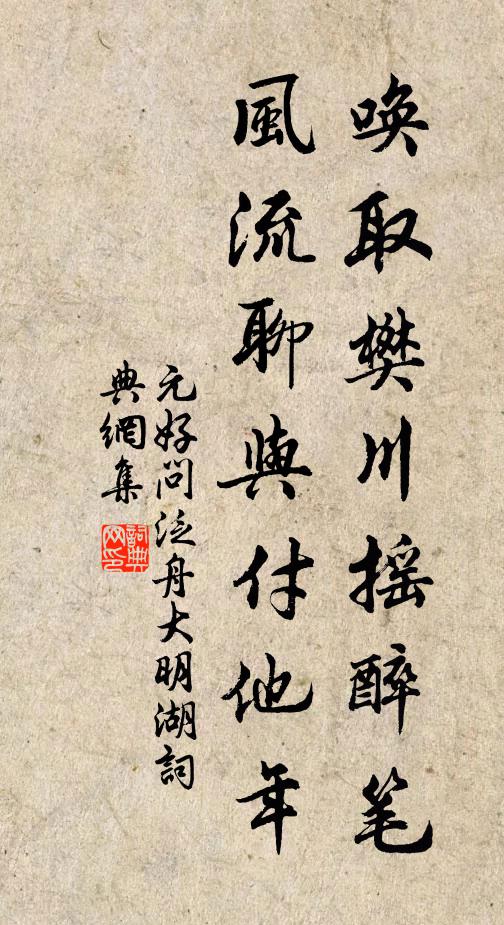 唤取樊川摇醉笔
風流聊與付他年
元好问泛舟大明湖詞
典網集
詞典網印